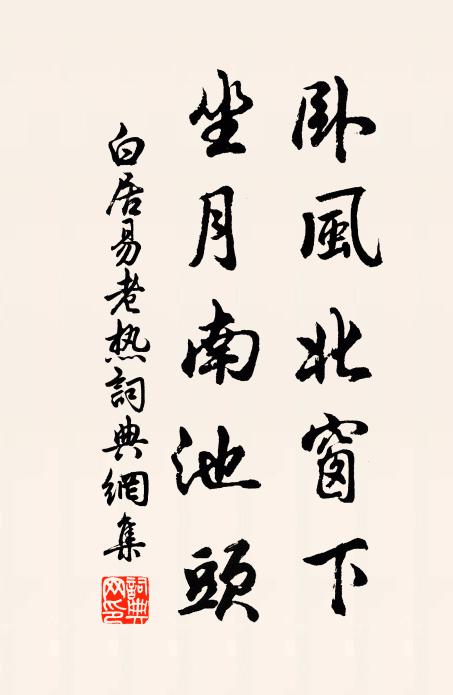 卧風北窗下
坐月南池頭
白居易老熱詞典網集
詞典網印